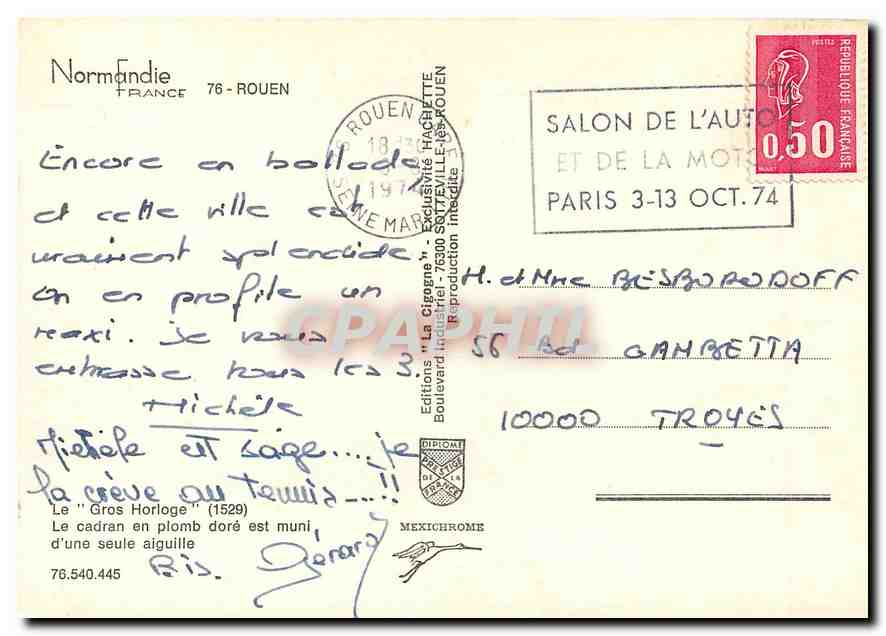 Normandie
FRANCE
76 - ROUEN
Encore en ballade
et cette ville est
vraiment splendide.
On en profite un
maxi. Je vous
embrasse tous les 3.
Michèle
Michèle est sage.... je
la crève au tennis....!!
Bis. Gérard
Le "Gros Horloge" (1529)
Le cadran en plomb doré est muni
d'une seule aiguille
76.540.445
ROUEN GARE
18 H30
1974
SEINE MAR
Editions "La Cigogne" - Exclusivité HACHETTE
Boulevard Industriel - 76300 SOTTEVILLE-lès-ROUEN
Reproduction interdite
DIPLOME
PRESTIGE
DE LA
FRANCE
MEXICHROME
SALON DE L'AUTO
ET DE LA MOTO
PARIS 3-13 OCT. 74
POSTES
RÉPUBLIQUE FRANÇAISE
0,50
M. et Mme BESBORODOFF
56 Bd GAMBETTA
10000 TROYES
CPAPHIL